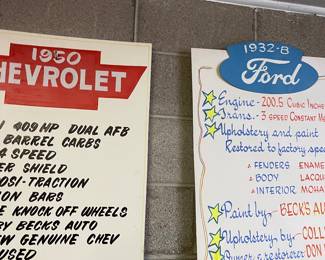 1950
CHEVROLET
409 HP DUAL AFB
BARREL CARBS
4 SPEED
SHIELD
OSI-TRACTION
ON BARS
KNOCK OFF WHEELS
BY BECK'S AUTO
GENUINE CHEV
USED
1932-B
Ford
Engine - 200.5 CUBIC INCHE
Trans. - 3 SPEED CONSTANT ME
Upholstery and paint
Restored to factory spe
FENDERS ENAME
BODY LACQU
INTERIOR MOHA
Paint by - BECK'S AU
Upholstery by - COLL
Owner & restorer DON